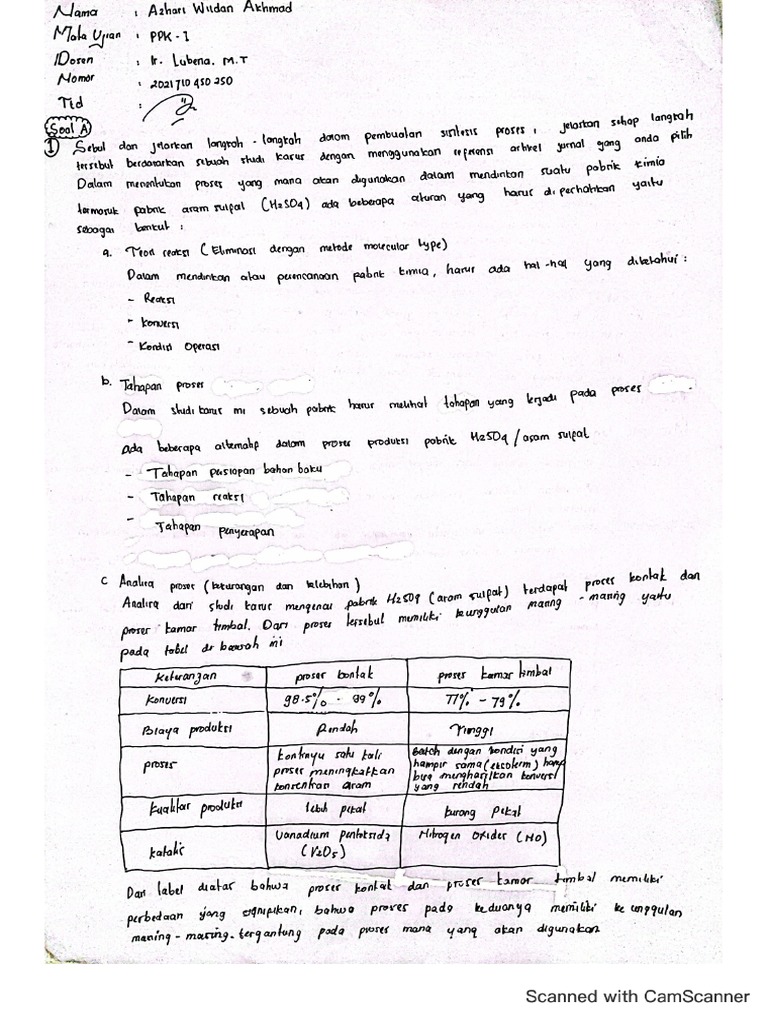 Nama : Azhari Wildan Akhmad
Mata Ujian : PPK-1
Dosen : Ir. Lubena. M.T
Nomor : 2021710450250
Ttd :
Soal A
1 Sebut dan jelaskan langkah-langkah dalam pembuatan sintesis proses, jelaskan setiap langkah
tersebut berdasarkan sebuah studi kasus dengan menggunakan referensi artikel jurnal yang anda pilih
Dalam menentukan proses yang mana akan digunakan dalam mendirikan suatu pabrik kimia
termasuk pabrik asam sulfat (H2SO4) ada beberapa aturan yang harus diperhatikan yaitu
sebagai berikut :
a. Teori reaksi (Eliminasi dengan metode molecular type)
Dalam mendirikan atau perencanaan pabrik kimia, harus ada hal-hal yang diketahui :
- Reaksi
- Konversi
- Kondisi Operasi
b. Tahapan proses
Dalam studi kasus ini sebuah pabrik harus melihat tahapan yang terjadi pada proses
Ada beberapa alternatif dalam proses produksi pabrik H2SO4/asam sulfat
- Tahapan persiapan bahan baku
- Tahapan reaksi
- Tahapan penyerapan
c Analisa proses (kekurangan dan kelebihan)
Analisa dari studi kasus mengenai pabrik H2SO4 (asam sulfat) terdapat proses kontak dan
proses kamar timbal. Dari proses tersebut memiliki keunggulan masing-masing yaitu
pada tabel di bawah ini
Keterangan proses kontak proses kamar timbal
Konversi 98.5% - 99% 77% - 79%
Biaya produksi Rendah Tinggi
proses kontinyu satu kali proses meningkatkan konsentrasi asam Batch dengan kondisi yang hampir sama (eksoterm) hanya bisa menghasilkan konversi yang rendah
kualitas produksi lebih pekat kurang pekat
katalis Vanadium pentoksida (V2O5) Nitrogen Oxides (NO)
Dari tabel diatas bahwa proses kontak dan proses kamar timbal memiliki
perbedaan yang signifikan, bahwa proses pada keduanya memiliki keunggulan
masing-masing. tergantung pada proses mana yang akan digunakan
Scanned with CamScanner